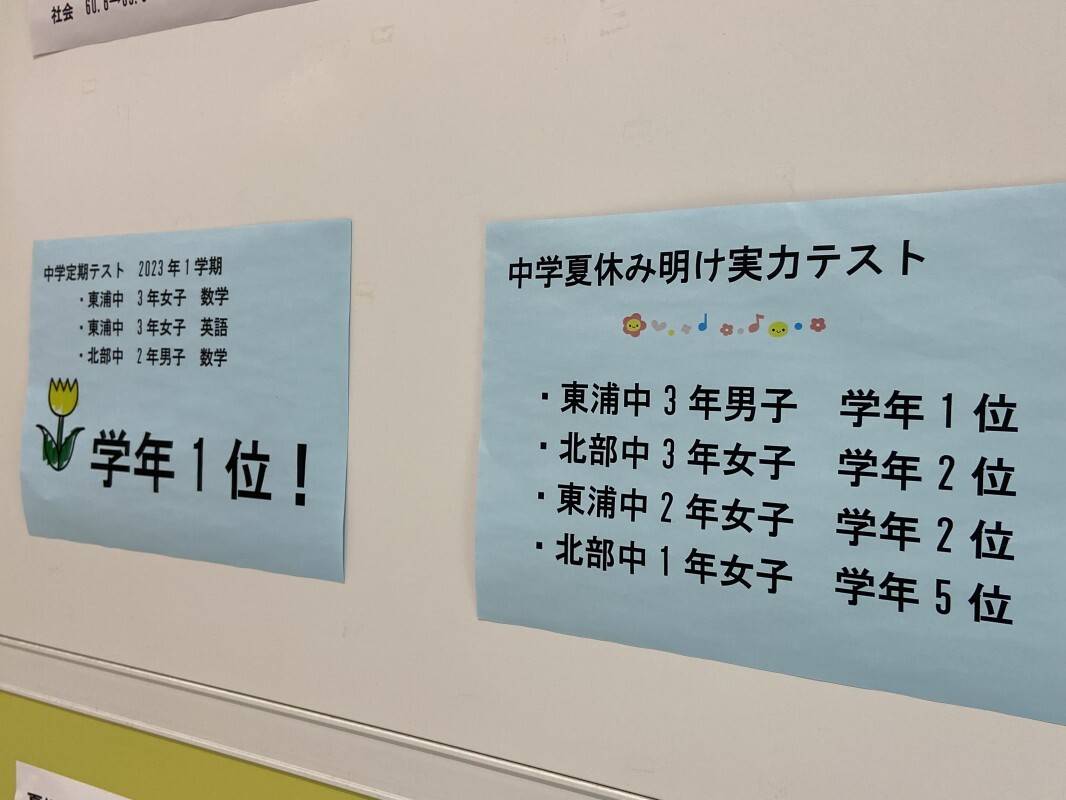 社会 60.6→
中学定期テスト 2023年1学期
・東浦中 3年女子 数学
・東浦中 3年女子 英語
・北部中 2年男子 数学
学年1位!
中学夏休み明け実力テスト
・東浦中3年男子 学年1位
・北部中3年女子 学年2位
・東浦中2年女子 学年2位
・北部中1年女子 学年5位